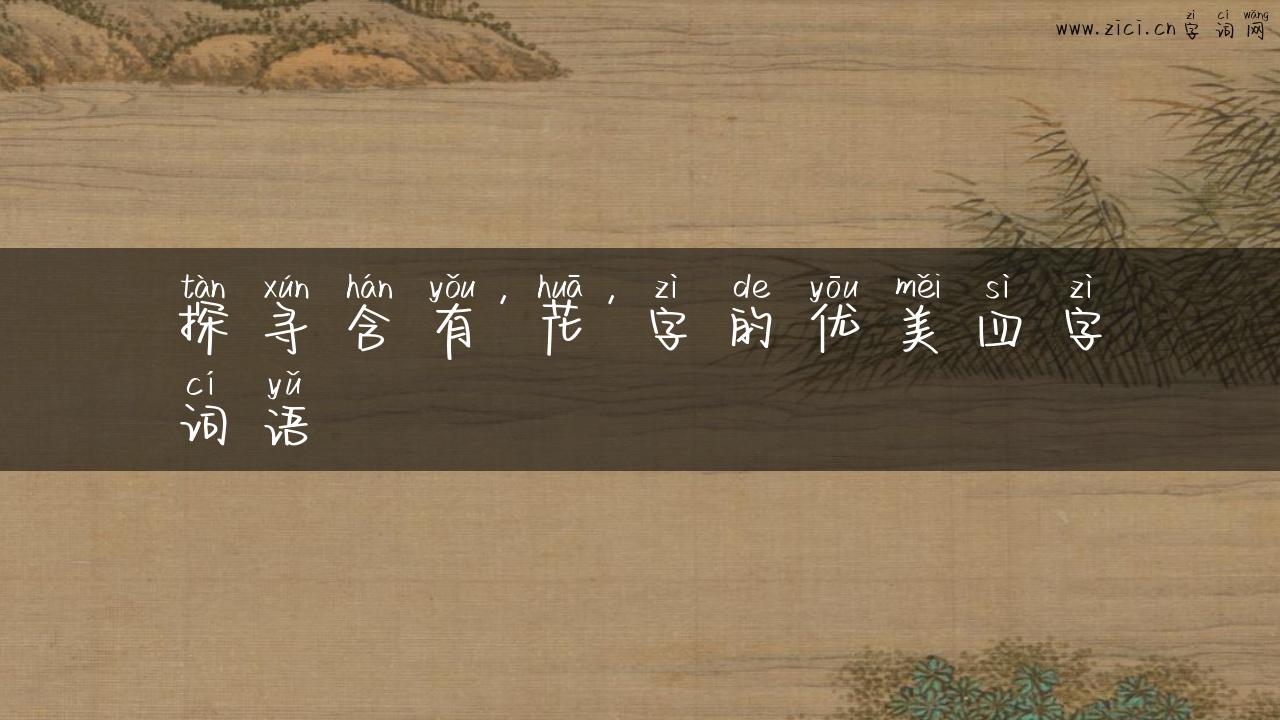 zì cí wǎng
www.zici.cn 字词网
tàn xún hán yǒu , huā , zì de yōu měi sì zì
探寻含有花字的优美四字
cí yǔ
词语